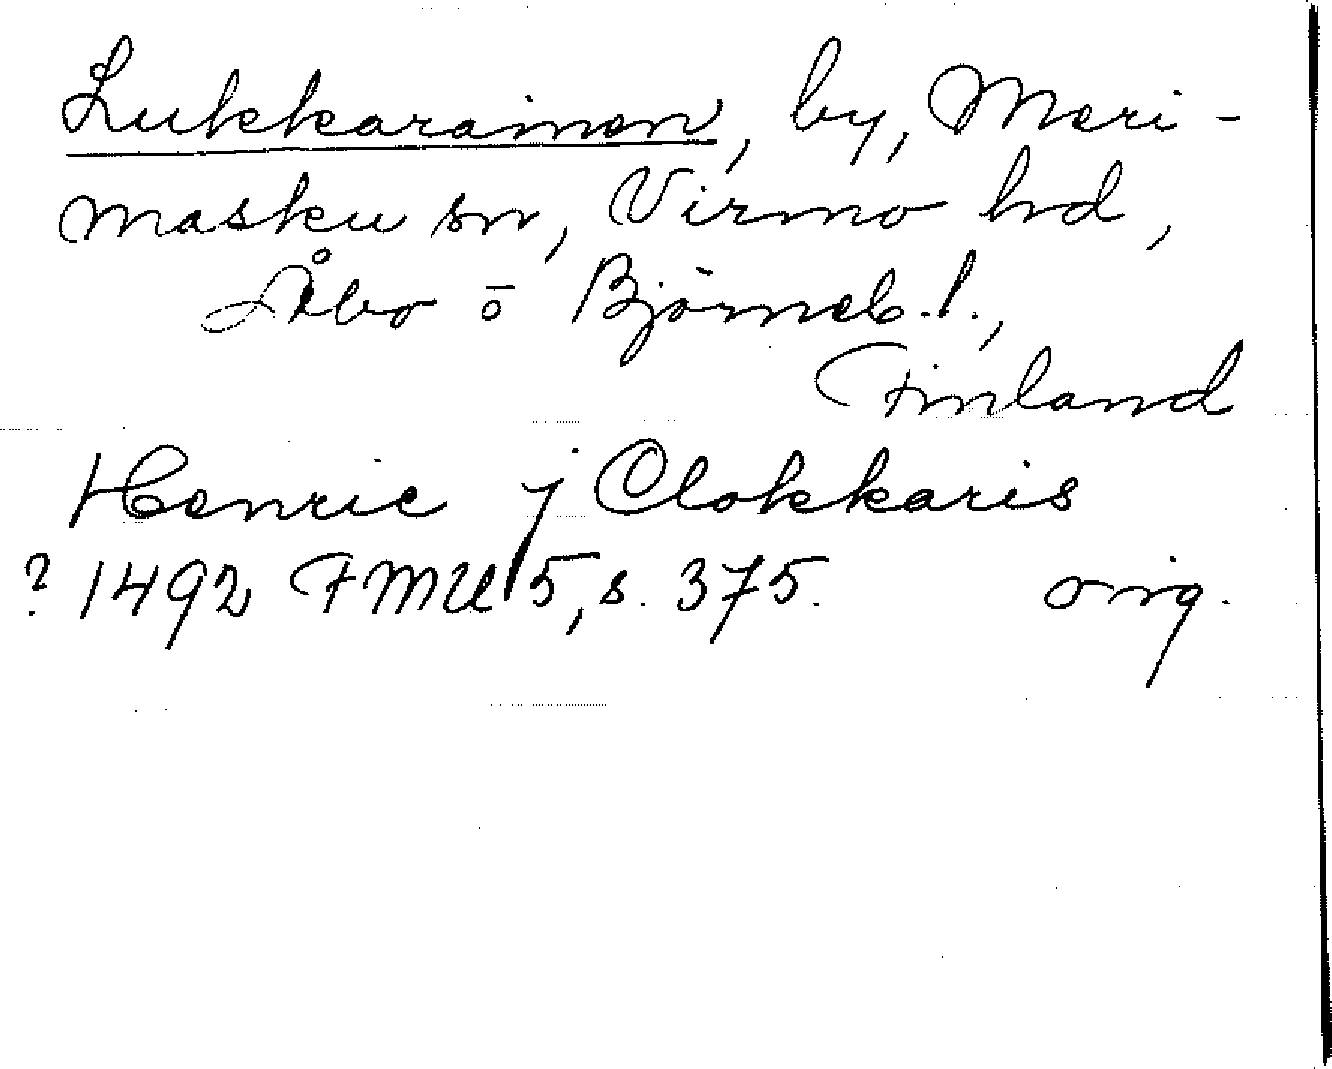 Lukkarainen, by, Meri-
masku sn, Virmo hd,
Åbo o Björneb.l.,
Finland
Henric j Clokkaris
? 1492 FMU 5, s. 375. orig.